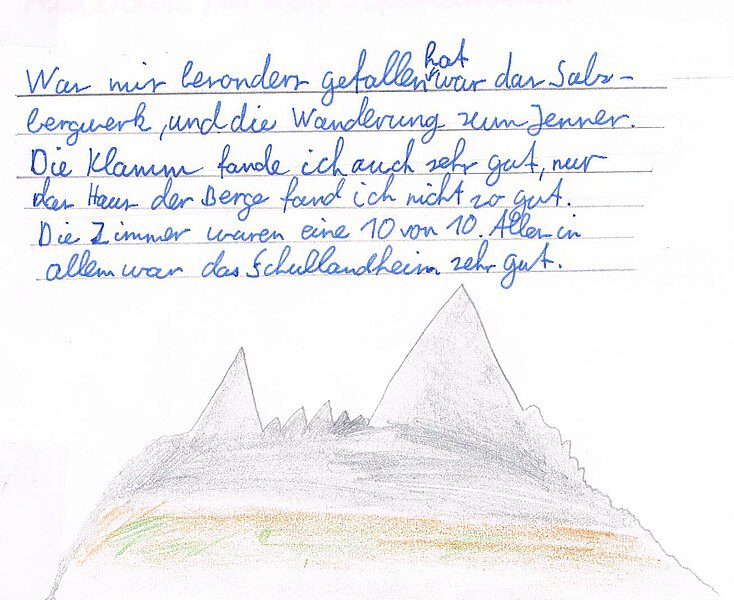 Was mir besonders gefallen hat war das Salz-
bergwerk, und die Wanderung zum Jenner.
Die Klamm fande ich auch sehr gut, nur
das Haus der Berge fand ich nicht so gut.
Die Zimmer waren eine 10 von 10. Alles in
allem war das Schullandheim sehr gut.